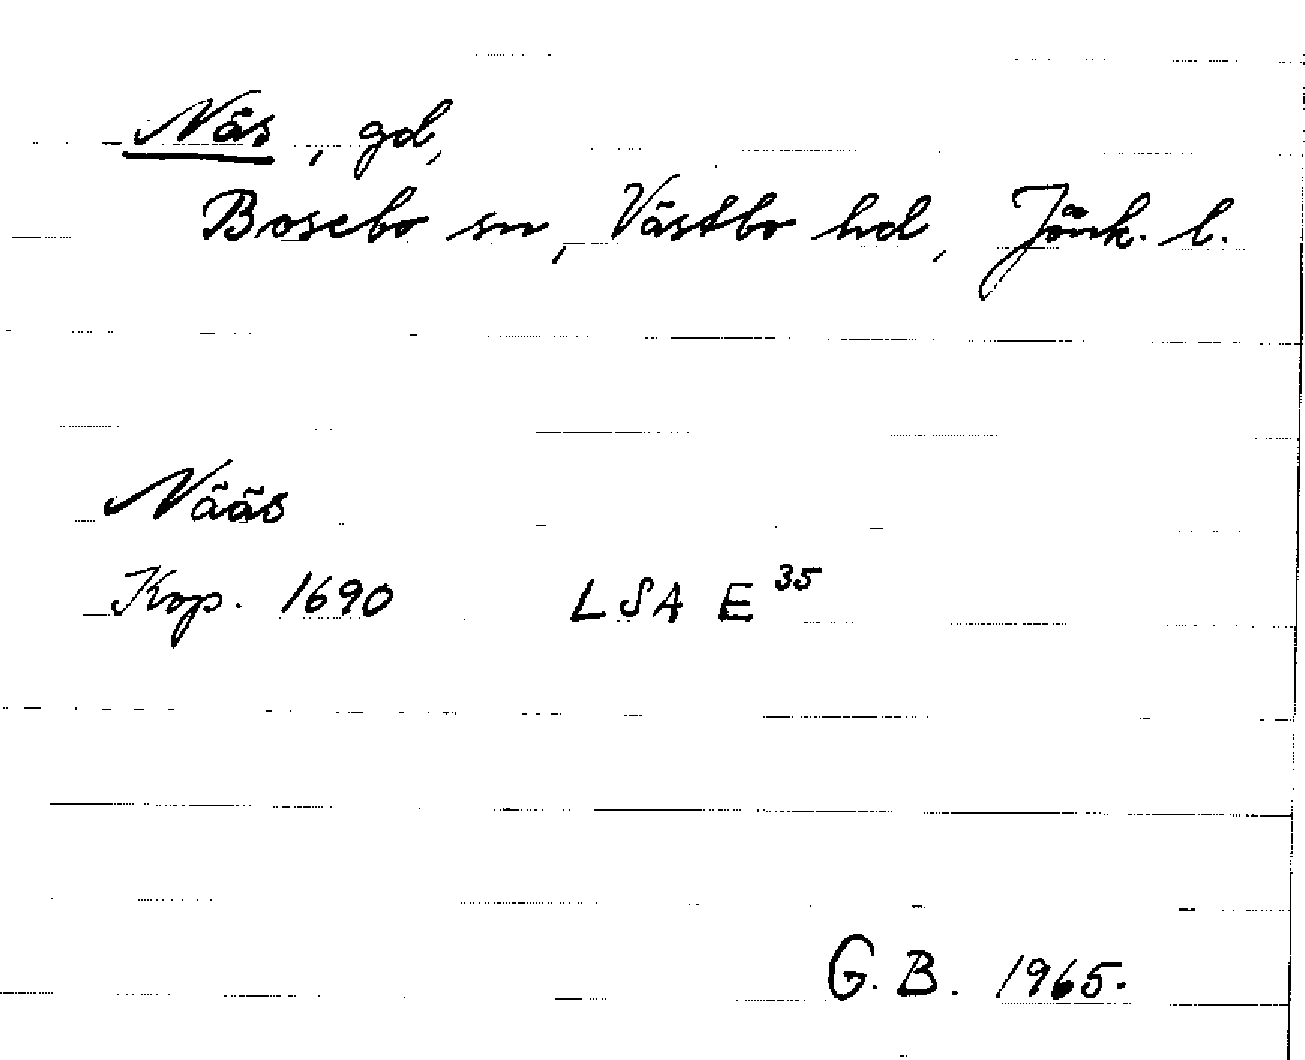 Näs, gd,
Bosebo sn, Västbo hd, Jönk. l.
Nääs
Kop. 1690 LSA E 35
G. B. 1965.